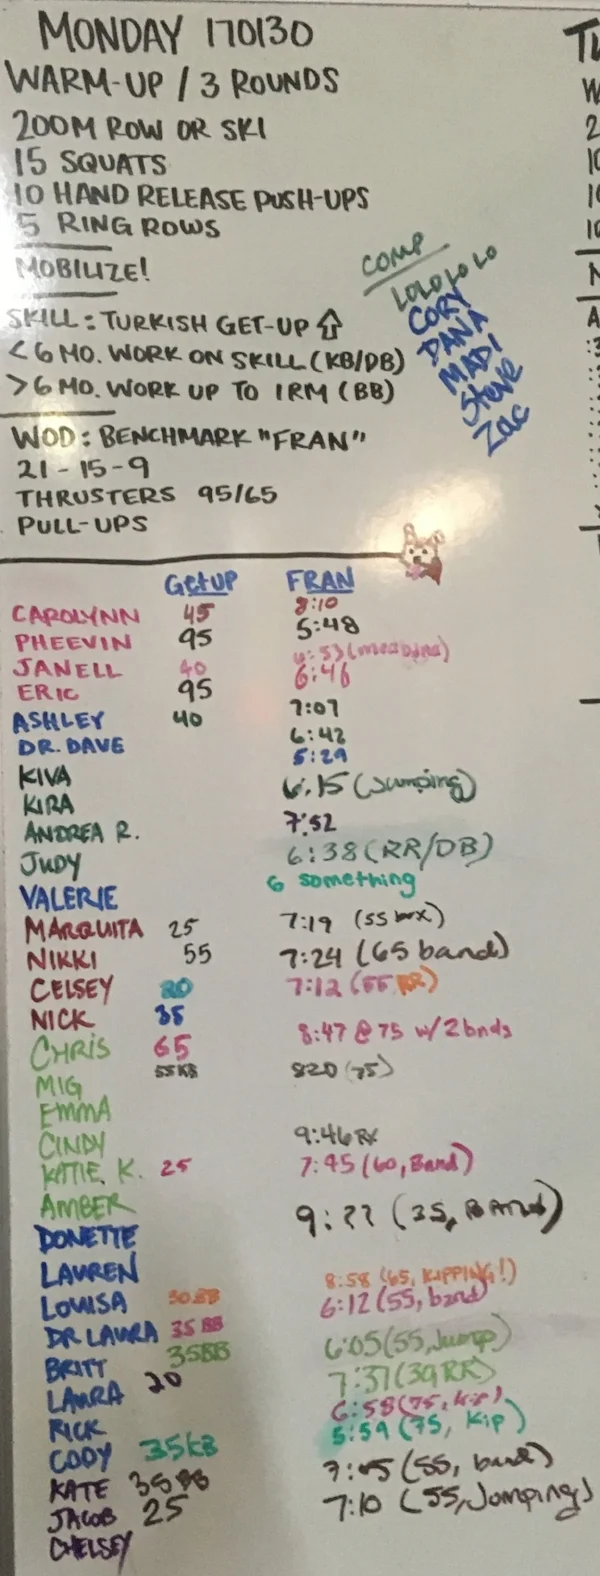 MONDAY 170130
WARM-UP / 3 ROUNDS
200M ROW OR SKI
15 SQUATS
10 HAND RELEASE PUSH-UPS
5 RING ROWS
MOBILIZE!
SKILL: TURKISH GET-UP ⇧
< 6 MO. WORK ON SKILL (KB/DB)
> 6 MO. WORK UP TO 1RM (BB)
WOD: BENCHMARK "FRAN"
21-15-9
THRUSTERS 95/65
PULL-UPS
COMP
LOLOLOLO
CORY
DANA
MADI
Steve
Zac
GetUP FRAN
CAROLYNN 45 8:10
PHEEVIN 95 5:48
JANELL 40
ERIC 95 6:46
ASHLEY 40 7:07
DR. DAVE 6:42
KIVA 5:29
KIRA 6:15 (Jumping)
ANDREA R. 7:52
JUDY 6:38 (RR/DB)
VALERIE 6 something
MARQUITA 25 7:19
NIKKI 55 7:24 (65 band)
CELSEY 20 7:12 (55 RR)
NICK 35
CHRIS 65 8:47 @ 75 w/ 2bnds
MIG 55KB 820 (75)
EMMA
CINDY 9:46 RX
KATIE. K. 25 7:45 (60, Band)
AMBER
DONETTE 9:?? (35, BAND)
LAUREN
LOUISA 30BB 8:58 (65, KIPPING!)
DR LAURA 35 BB 6:12 (55, band)
BRITT 35BB 6:05 (55, Jump)
LAURA 20 7:37 (39 RR)
RICK 6:58 (75, kip)
CODY 35KB 5:59 (75, Kip)
KATE 35BB (55, band)
JACOB 25 7:10 (55, Jumping)
CHELSEY